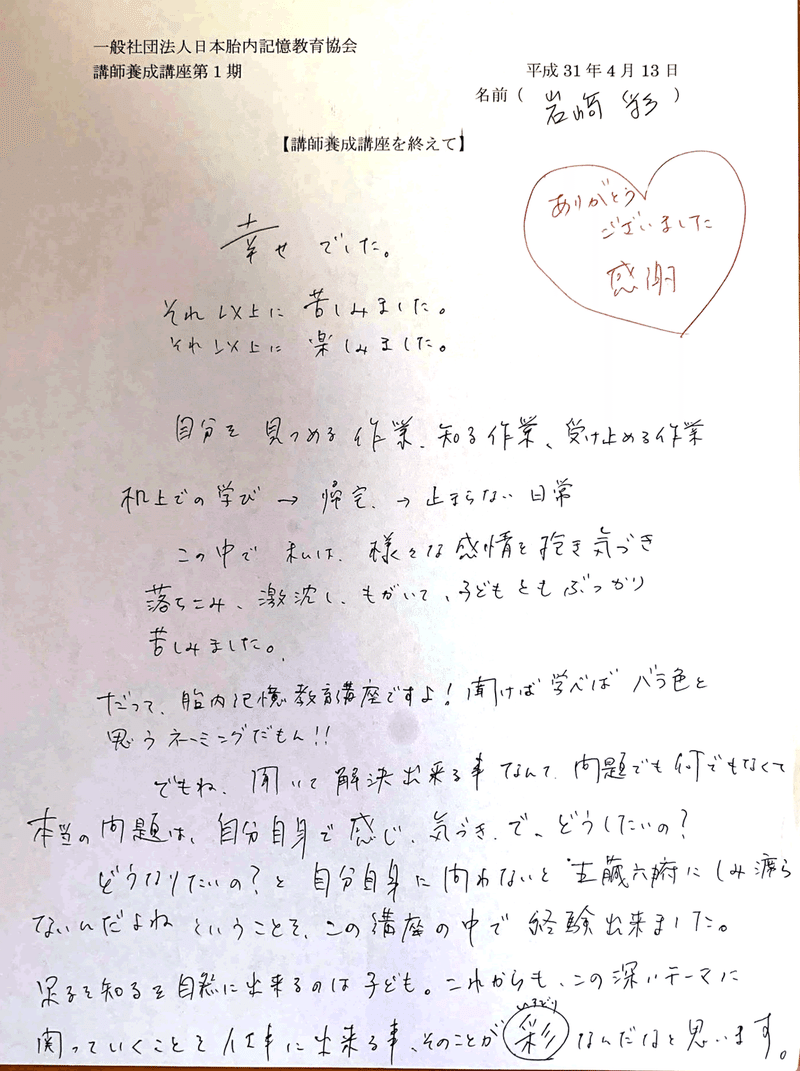 一般社団法人日本胎内記憶教育協会
講師養成講座第1期
平成31年4月13日
名前( 岩崎 彩 )
【講師養成講座を終えて】
ありがとう
ございました
感謝
幸せでした。
それ以上に 苦しみました。
それ以上に 楽しみました。
自分を 見つめる 作業、知る作業、受け止める作業
机上での学び → 帰宅 → 止まらない日常
この中で 私は、様々な感情を抱き気づき
落ちこみ、激沈し、もがいて、子どもともぶつかり
苦しみました。
だって、胎内記憶教育講座ですよ!聞けば学べばバラ色と
思うネーミングだもん!!
でもね、聞いて解決出来る事なんて、問題でも何でもなくて
本当の問題は、自分自身で感じ、気づき、で、どうしたいの?
どうなりたいの?と自分自身に問わないと五臓六腑にしみ渡ら
ないんだよねということを、この講座の中で経験出来ました。
足るを知るを自然に出来るのは子ども。これからも、この深いテーマに
いろどり
関っていくことを仕事に出来る事、そのことが彩なんだなと思います。